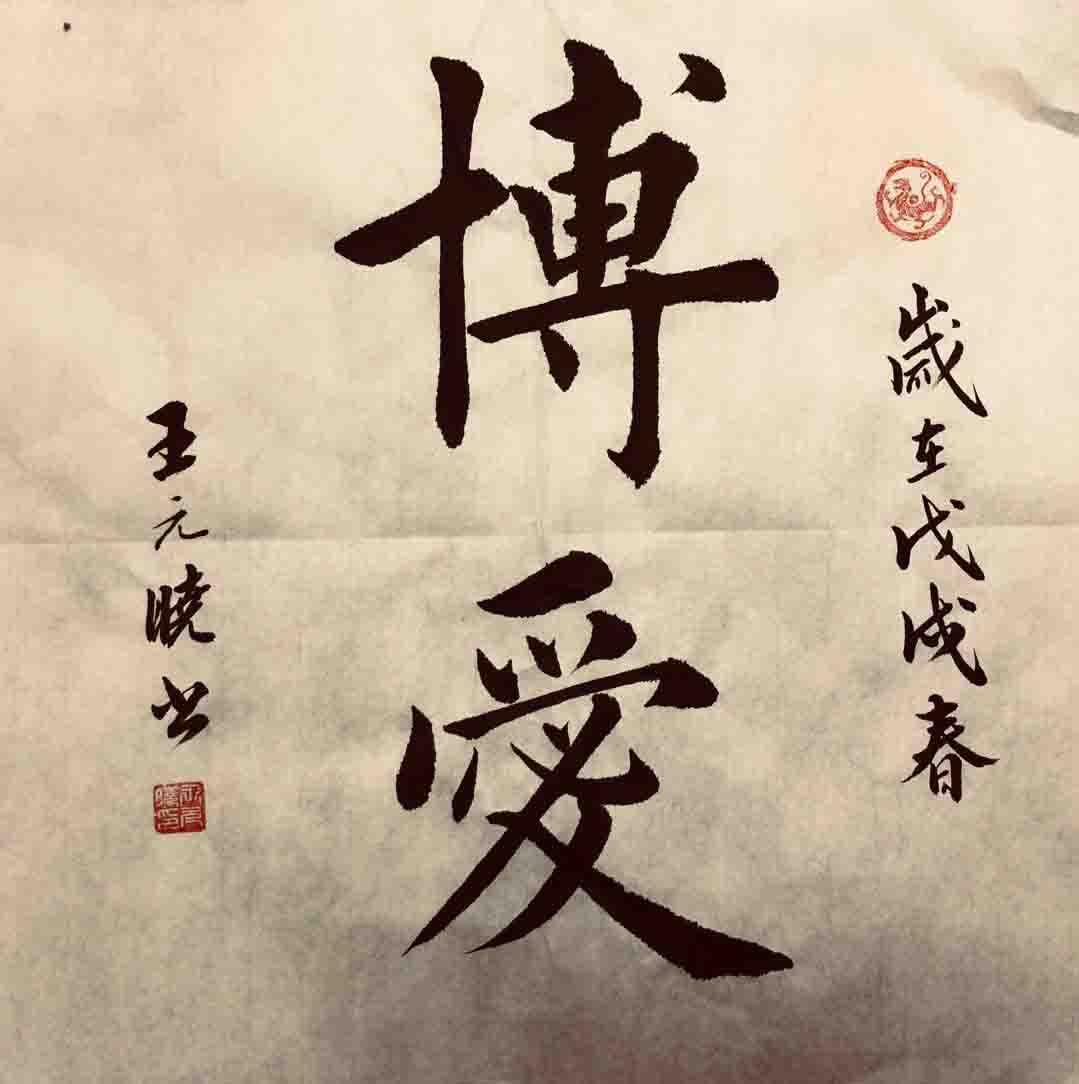 博愛
歲在戊戌春
王元曉书